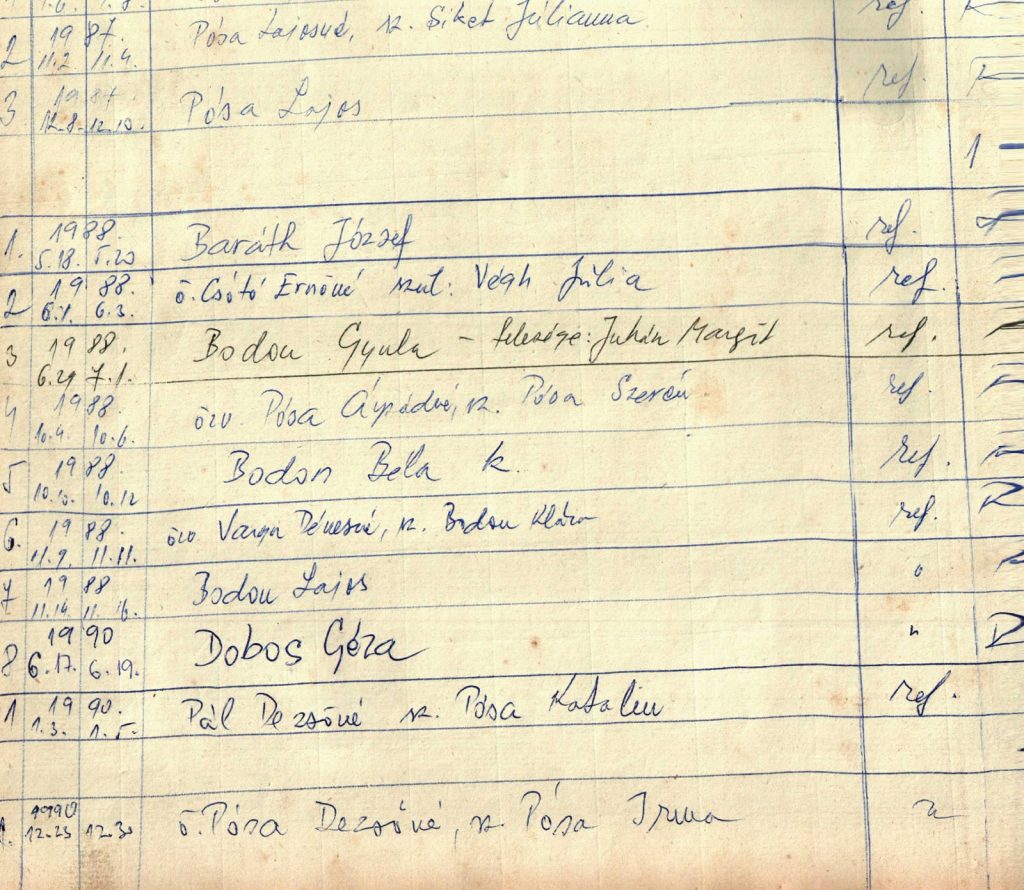 2 1987. 11.2 11.4. Pósa Lajosné, sz. Siket Júlianna ref.
3 1987 12.8-12.10. Pósa Lajos ref.
1
1. 1988. 5.18. 5.20 Baráth József ref.
2 1988. 6.1. 6.3. ö. Csótó Ernőné szül: Végh Júlia ref.
3 1988. 6.29 7.1. Bodon Gyula – felesége: Juhán Margit ref.
4 1988. 10.4. 10.6. özv. Pósa Árpádné, sz. Pósa Szerén ref.
5 1988. 10.10. 10.12 Bodon Béla k. ref.
6. 1988 11.9. 11.11. özv. Varga Dénesné, sz. Bodon Klára ref.
7 1988 11.14. 11.16. Bodon Lajos "
8 1990 6.17. 6.19. Dobos Géza "
1 1990. 1.3. 1.5. Pál Dezsőné sz. Pósa Katalin ref.
1990 12.25 12.30 ö. Pósa Dezsőné, sz. Pósa Irma "